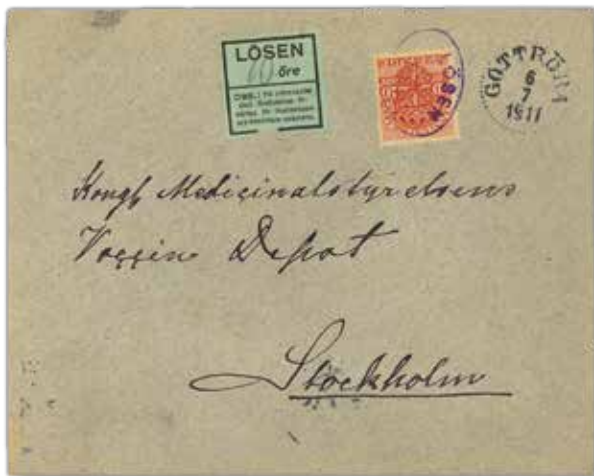 LÖSEN
10 öre
GOTTRÖRA
6
7
1911
Kongl Medicinalstyrelsens
Vaccin Depot
Stockholm